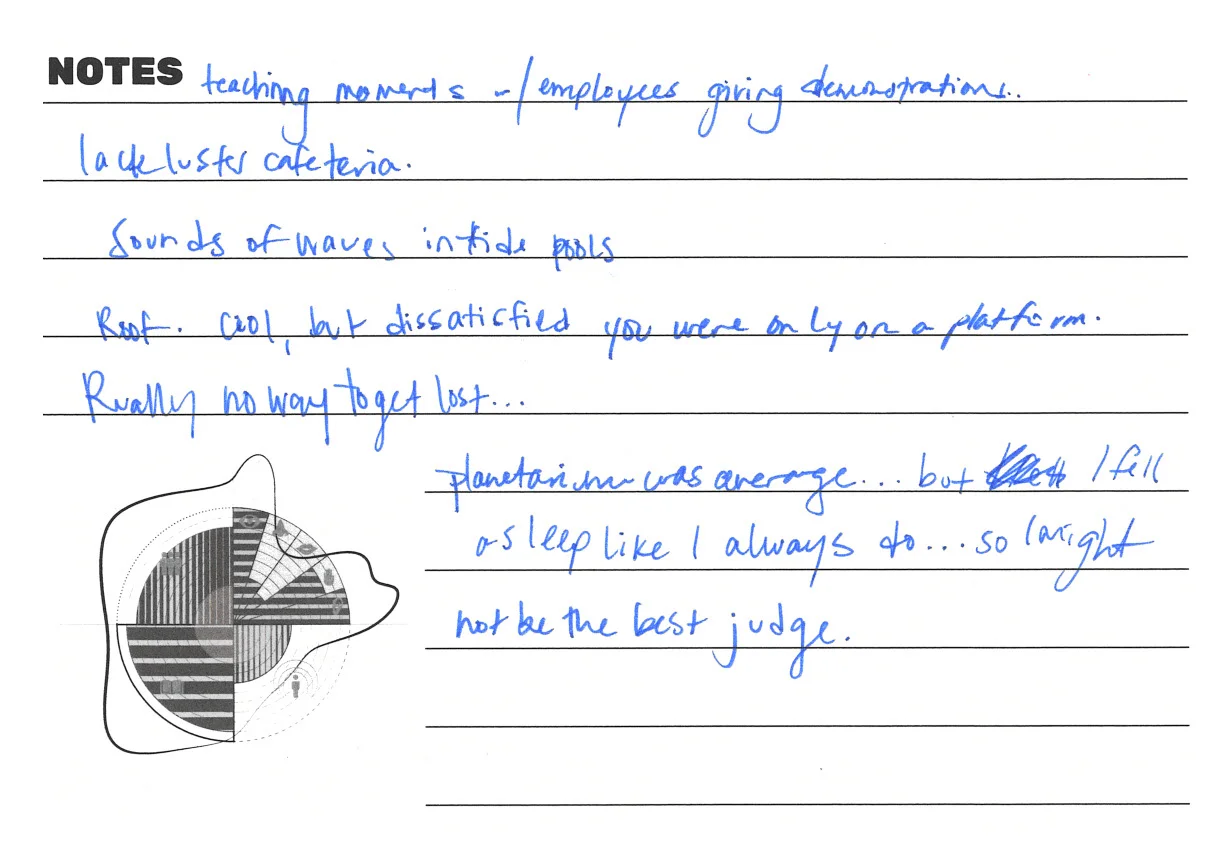 NOTES teaching moments w/employees giving demonstrations..
lackluster cafeteria.
Sounds of waves in tide pools
Roof. Cool, but dissatisfied you were only on a platform.
Really no way to get lost...
planetarium was average... but I fell
asleep like I always do... so I might
not be the best judge.